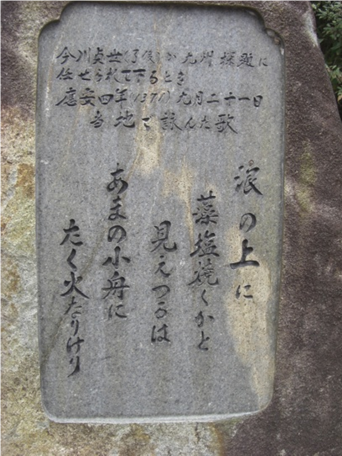 今川貞世(了俊)が九州探題に
任ぜられて下るとき
應安四年1371九月二十一日
当地で詠んだ歌
浪の上に
藻塩焼くかと
見えつるは
あまの小舟に
たく火なりけり